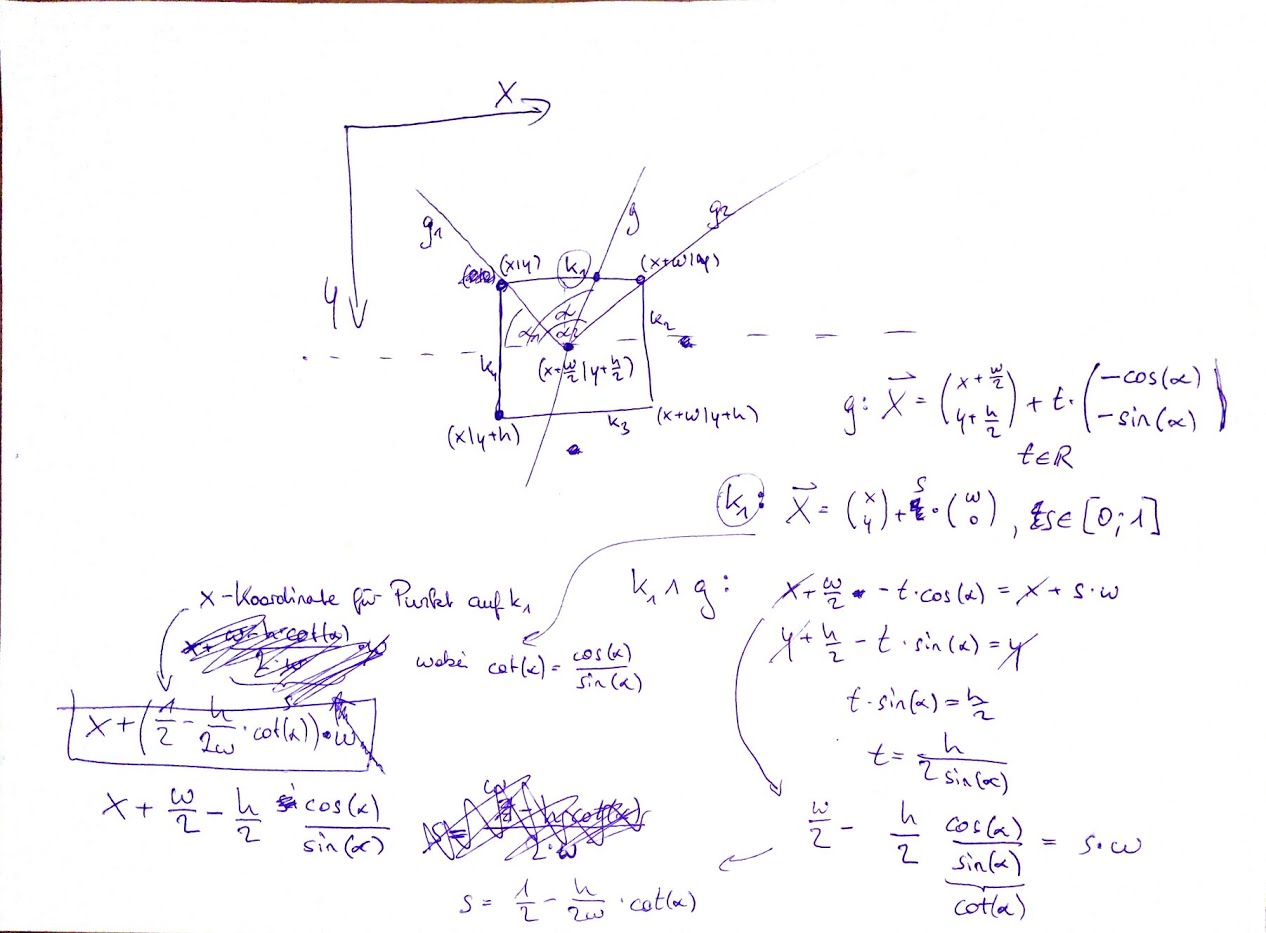 X
y
g1
g
g2
(x|y)
k1
(x+w|y)
α
α1
α2
k2
k4
(x+w/2|y+h/2)
(x|y+h)
k3
(x+w|y+h)
g: X⃗ = (x+w/2 y+h/2) + t·(-cos(α) -sin(α))
t∈R
k1: X⃗ = (x y) + s·(w 0), s∈[0;1]
k1 ∧ g:
x+w/2 - t·cos(α) = x + s·w
y+h/2 - t·sin(α) = y
t·sin(α) = h/2
t = h/(2 sin(α))
w/2 - h/2 cos(α)/sin(α) = s·w
cot(α)
s = 1/2 - h/2w · cot(α)
x-Koordinate für Punkt auf k1
wobei cot(α) = cos(α)/sin(α)
x + (1/2 - h/2w · cot(α))·w
x + w/2 - h/2 cos(α)/sin(α)